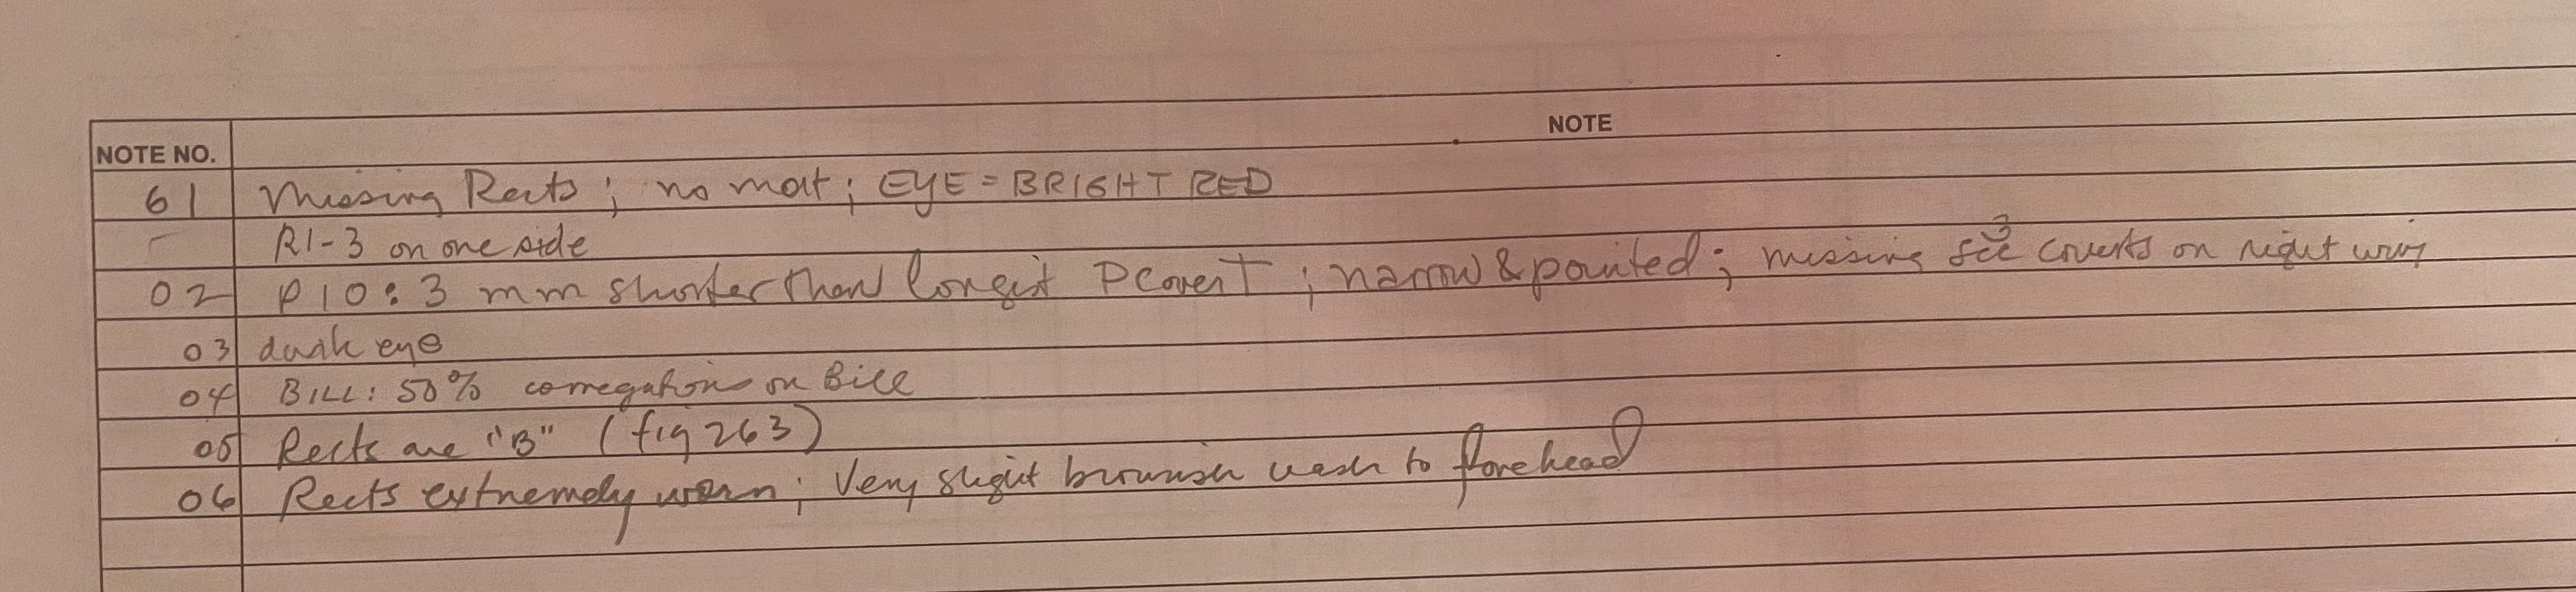 NOTE
NOTE NO.
61 Missing Rects; no molt; EYE = BRIGHT RED
R1-3 on one side
02 P10: 3 mm shorter than longest Pcovert; narrow & pointed; missing 3 sec coverts on right wing
03 dark eye
04 BILL: 50% corregations on Bill
05 Rects are "B" (fig 263)
06 Rects extremely worn; Very slight brownish wash to forehead